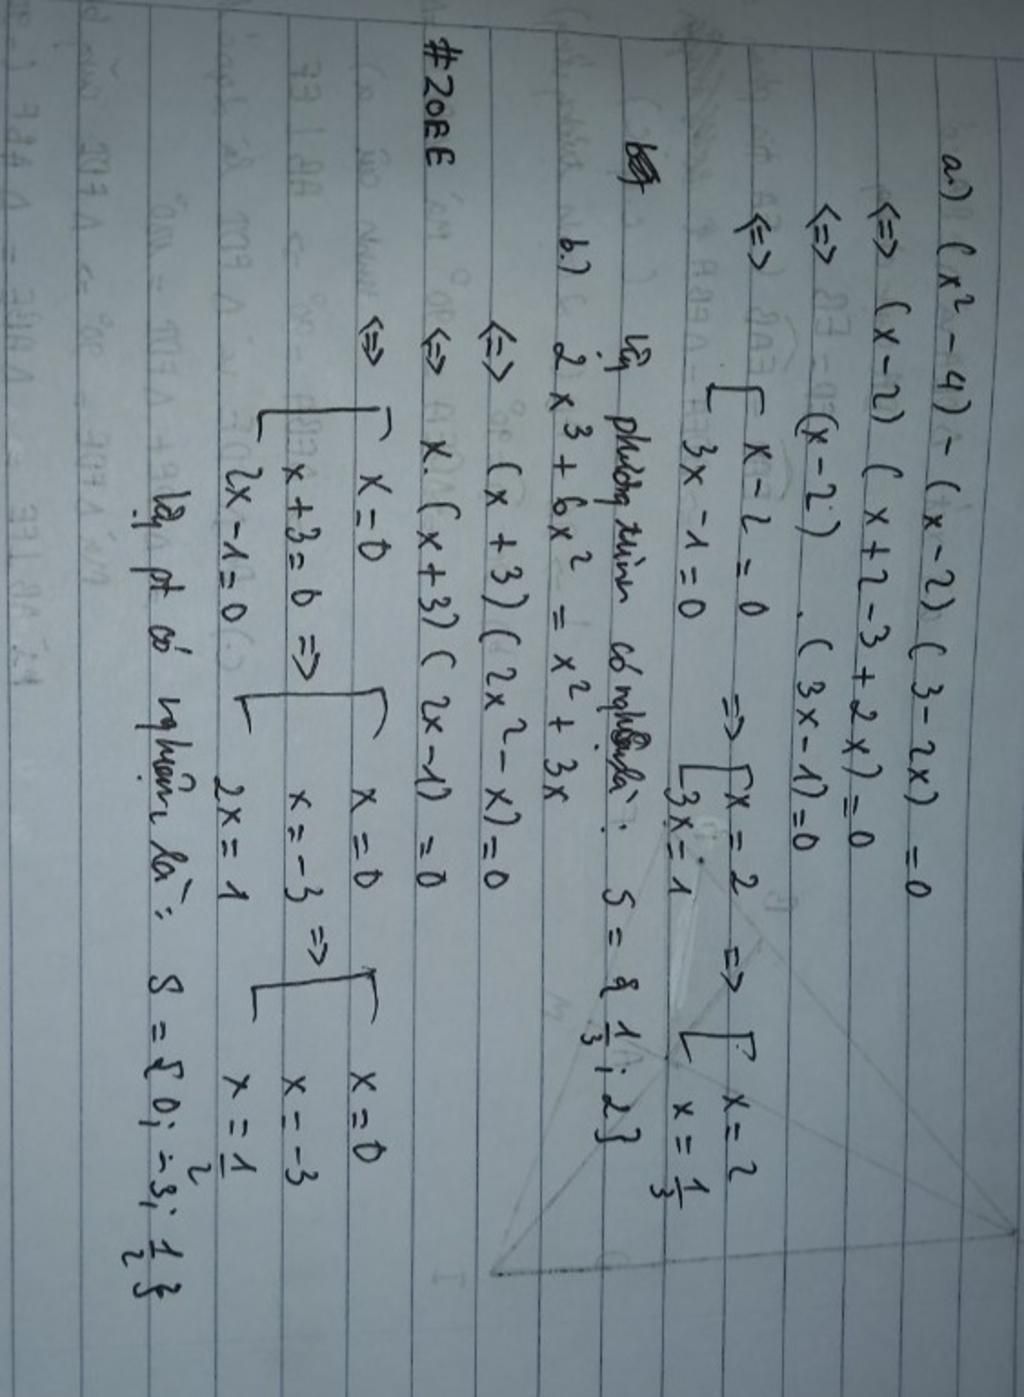 a.) (x² - 4) - (x - 2) (3 - 2x) = 0
<=> (x - 2) (x + 2 - 3 + 2x) = 0
<=> (x - 2) . (3x - 1) = 0
<=> [ x - 2 = 0 => [ x = 2 => [ x = 2
3x - 1 = 0 [ 3x = 1 [ x = 1/3
Vậy phương trình có nghiệm là: S = { 1/3 ; 2 }
b.) 2x³ + 6x² = x² + 3x
<=> (x + 3) (2x² - x) = 0
<=> x. (x + 3) (2x - 1) = 0
<=> [ x = 0 [ x = 0 [ x = 0
x + 3 = 0 => x = -3 => x = -3
2x - 1 = 0 2x = 1 x = 1/2
Vậy pt có nghiệm là: S = { 0; -3; 1/2 }
#ZOEE